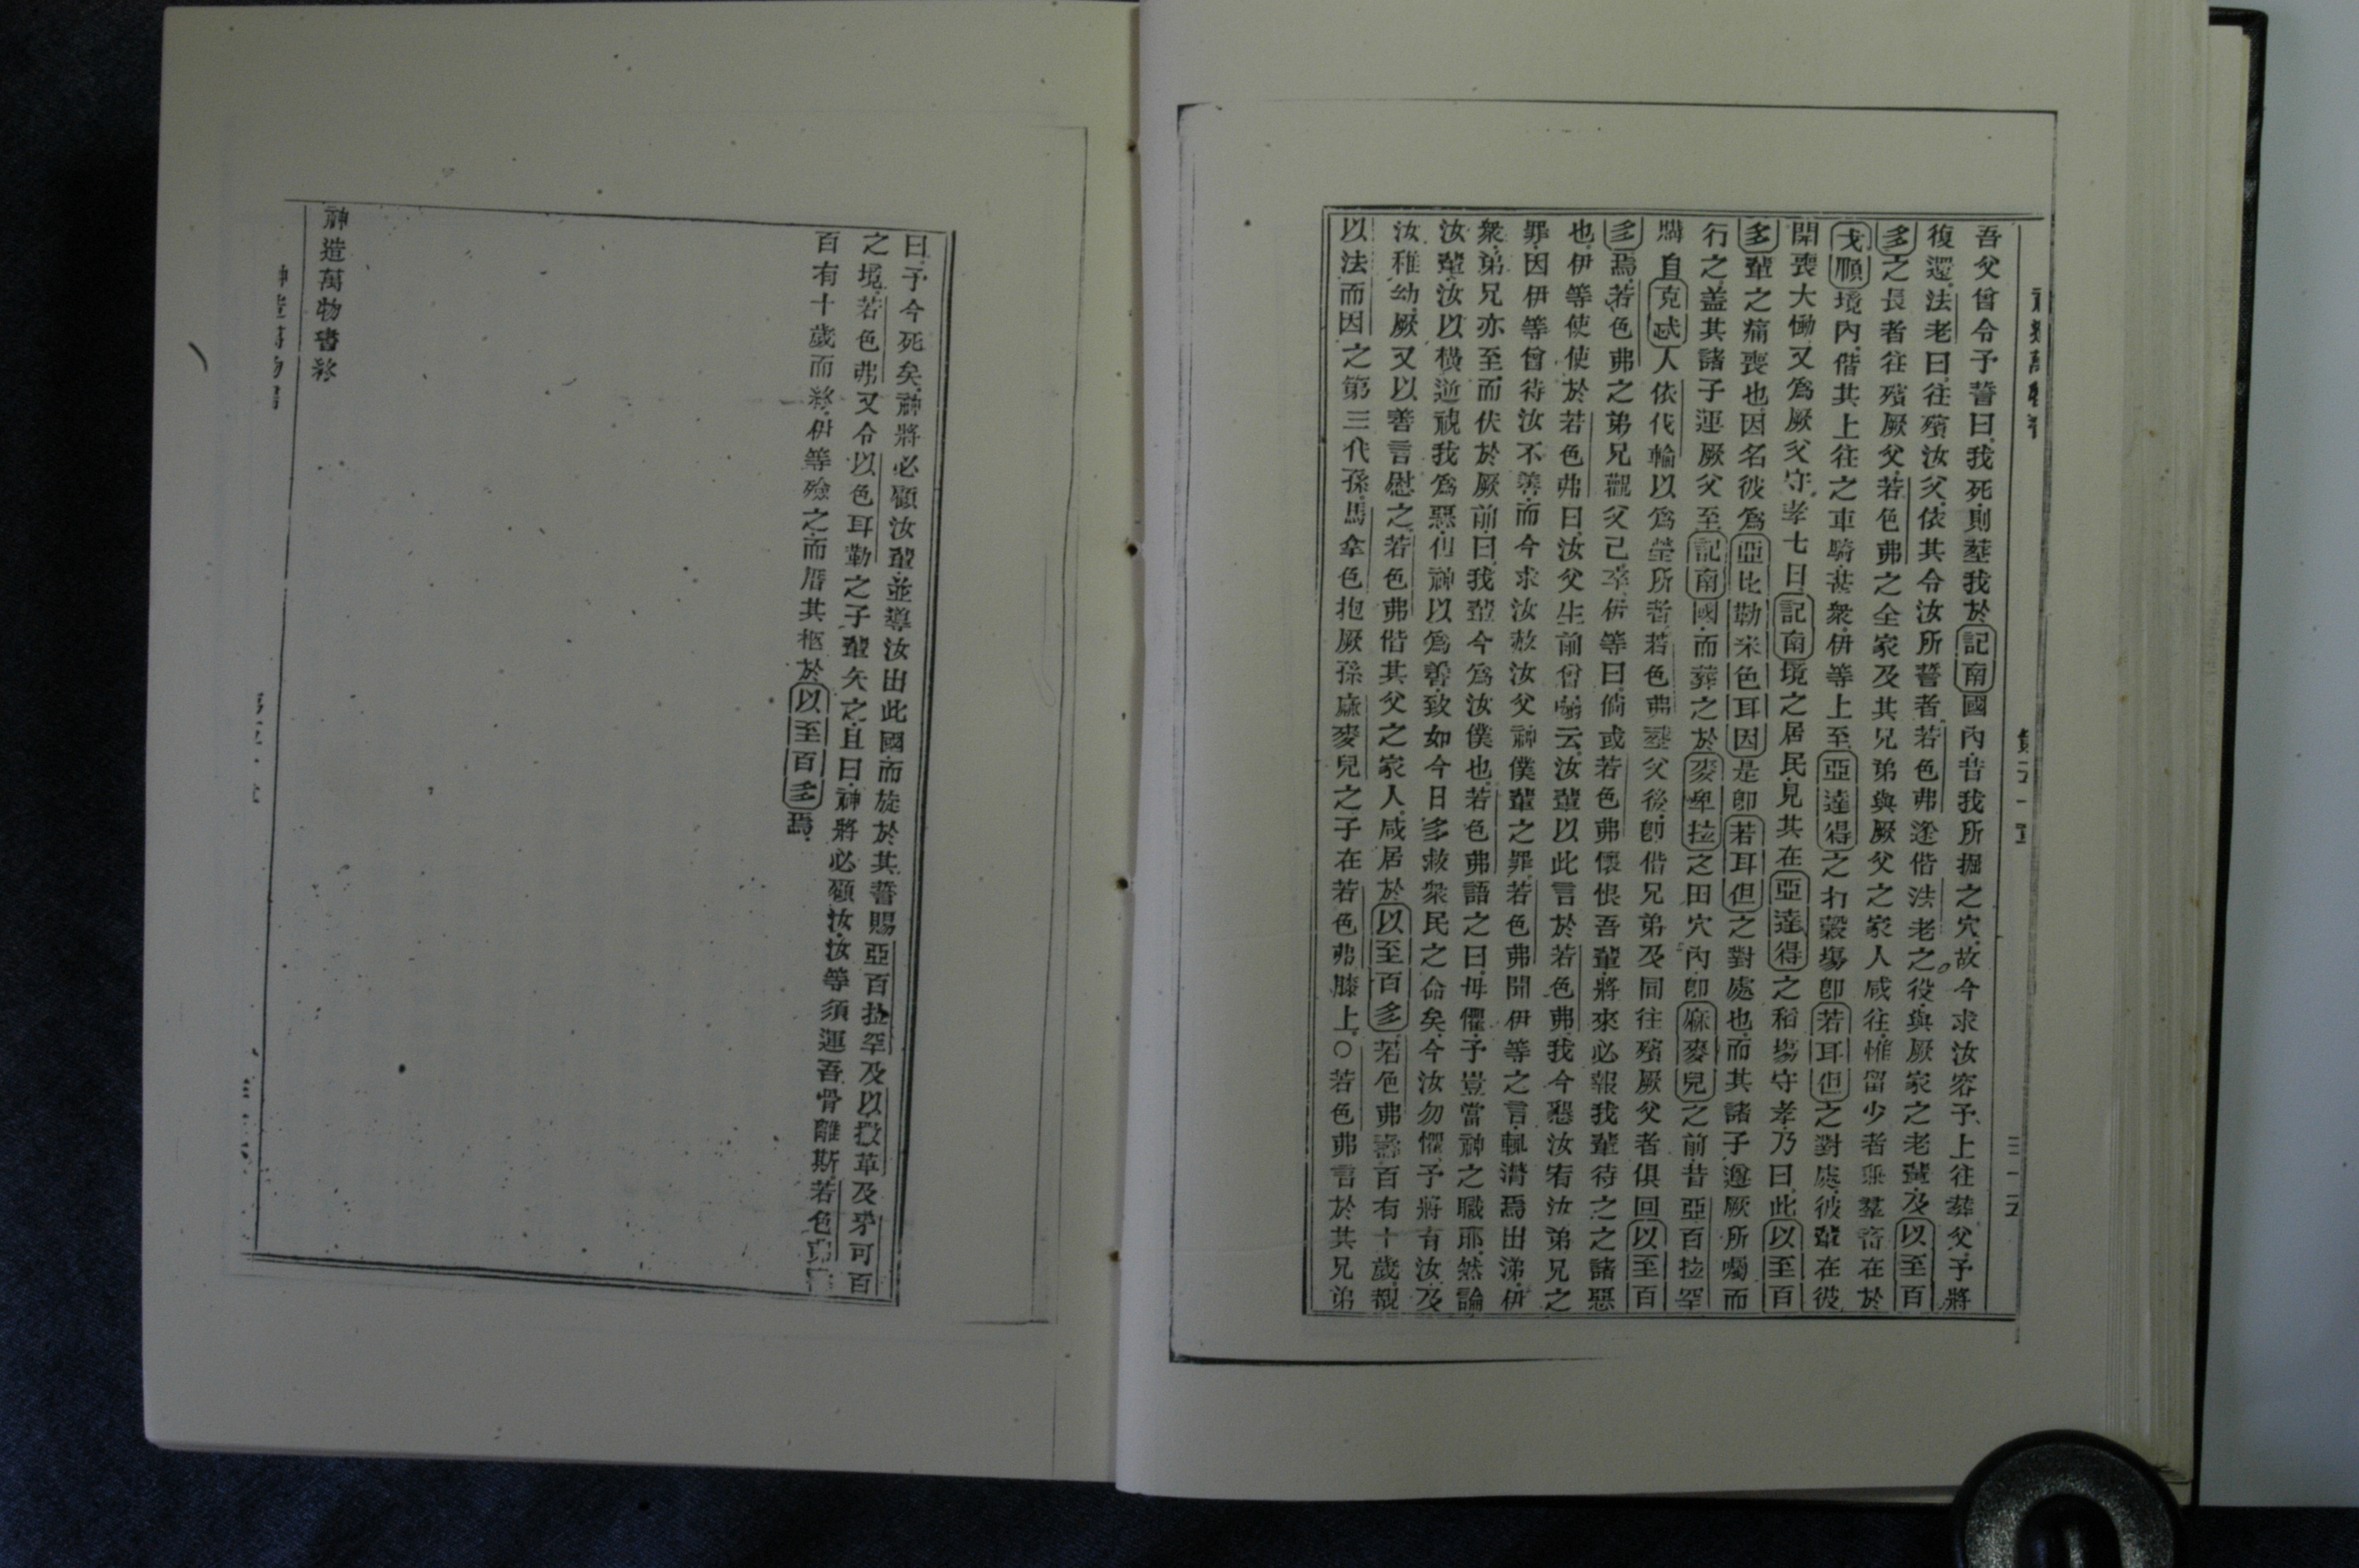 吾父曾令予誓曰我死則塟我於記南國內昔我所掘之穴故今求汝容予上往葬父予將
復還法老曰往殯汝父依其令汝所誓者若色弗遂偕法老之役與厥家之老輩及以至百
多之長者往殯厥父若色弗之全家及其兄弟與厥父之家人咸往惟留少者並羣畜在於
戈順境內偕其上往之車騎甚衆伊等上至亞達得之打穀塲即若耳但之對處彼輩在彼
開喪大慟又爲厥父守孝七日記南境之居民見其在亞達得之稻塲守孝乃曰此以至百
多輩之痛喪也因名彼爲亞比勒米色耳因是即若耳但之對處也而其諸子遵厥所囑而
行之蓋其諸子運厥父至記南國而葬之於麥卑拉之田穴內即麻麥兒之前昔亞百拉罕
購自克忒人依伐輪以爲塋所者若色弗塟父後即偕兄弟及同往殯厥父者俱回以至百
多焉若色弗之弟兄觀父已卒伊等曰倘或若色弗懷恨吾輩將來必報我輩待之之諸惡
也伊等使使於若色弗曰汝父生前曾囑云汝輩以此言於若色弗我今懇汝宥汝弟兄之
罪因伊等曾待汝不善而今求汝赦汝父神僕輩之罪若色弗聞伊等之言輒潸焉出涕伊
衆弟兄亦至而伏於厥前曰我輩今爲汝僕也若色弗語之曰毋懼予豈當神之職耶然論
汝輩汝以橫逆視我爲惡但神以爲善致如今日多救衆民之命矣今汝勿懼予將有汝及
汝稚幼厥又以善言慰之若色弗偕其父之家人咸居於以至百多若色弗壽百有十歲覩
以法而因之第三代孫馬拿色抱厥孫麻麥兒之子在若色弗膝上○若色弗言於其兄弟
曰予今死矣神將必顧汝輩並導汝出此國而旋於其誓賜亞百拉罕及以撒革及牙可百
之境若色弗又令以色耳勒之子輩矢之且曰神將必顧汝汝等須運吾骨離斯若色弗
百有十歲而終伊等殮之而厝其柩於以至百多焉
神造萬物書終